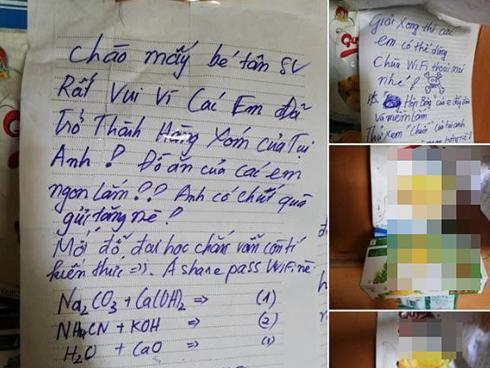 Chào mấy bé tân SV
Rất Vui Vì Các Em đã
Trở Thành Hàng Xóm của Tụi
Anh ! Đồ ăn của các em
ngon lắm ?? Anh có chút quà
gửi tặng nè !
Mới đỗ đại học chắc vẫn còn tí
kiến thức =)). A share pass WiFi nè
Na2CO3 + Ca(OH)2 => (1)
NH4CN + KOH => (2)
H2O + CaO =>
Giải xong thì các
em có thể dùng
Chùa WiFi thoải mái
nhé !
và mềm lắm